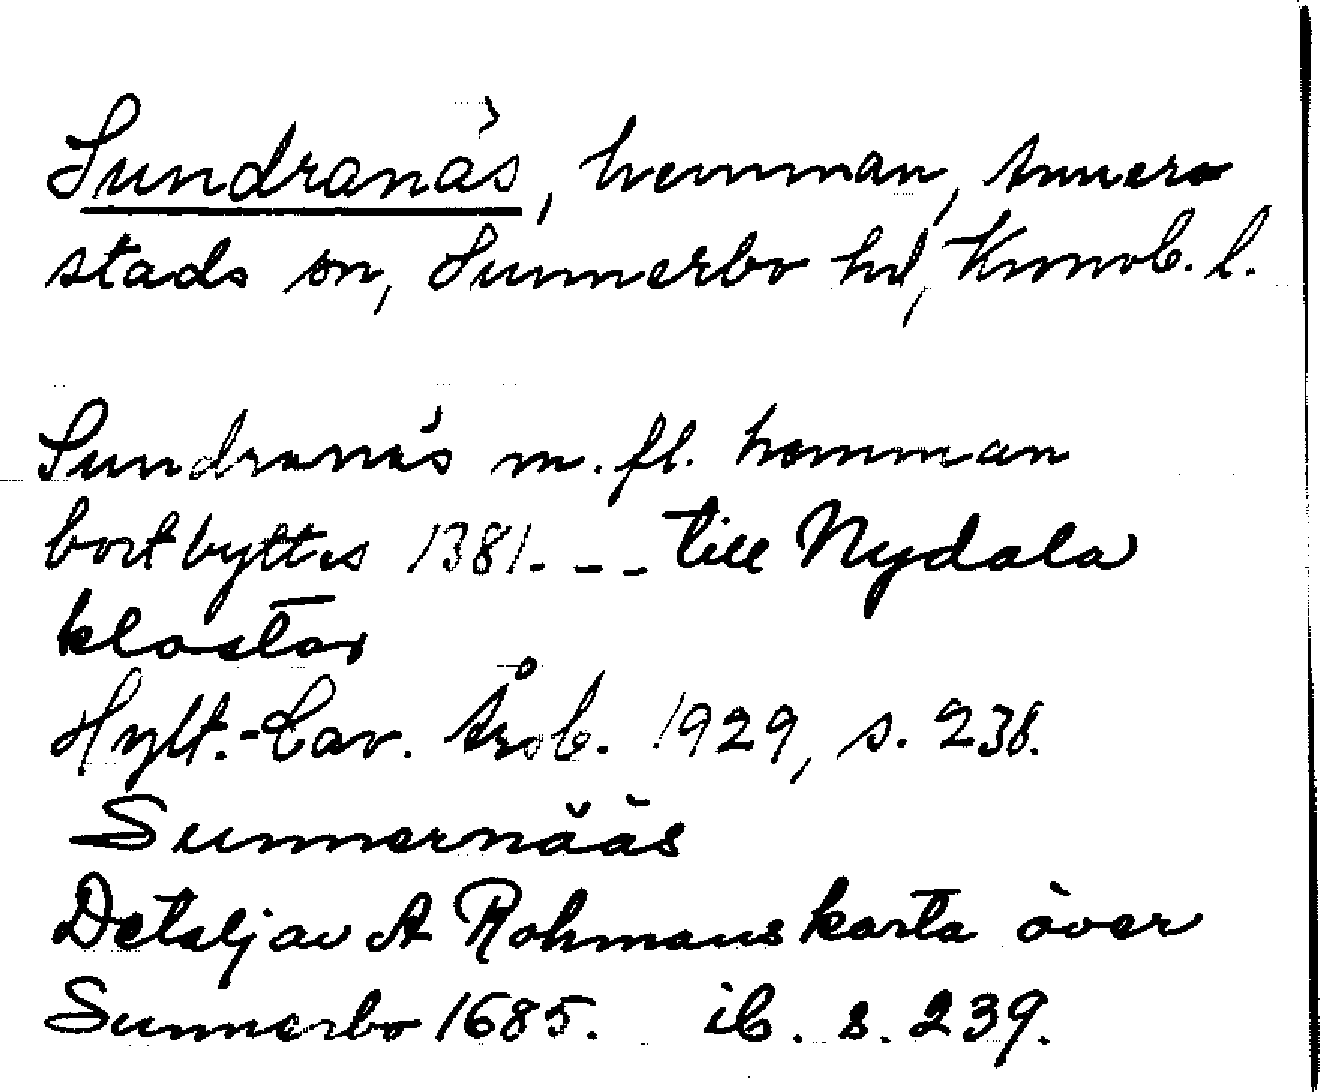 Sundranäs, hemman, Annero
stads sn, Sunnerbo hd, Kronob. l.
Sundranäs m. fl. hemman
bortbyttes 1381. - - till Nydala
kloster
Hylt.-Cav. Årsb. 1929, s. 238.
Sunnernääs
Detalj av A Rohmans karta över
Sunnerbo 1685. ib. s. 239.